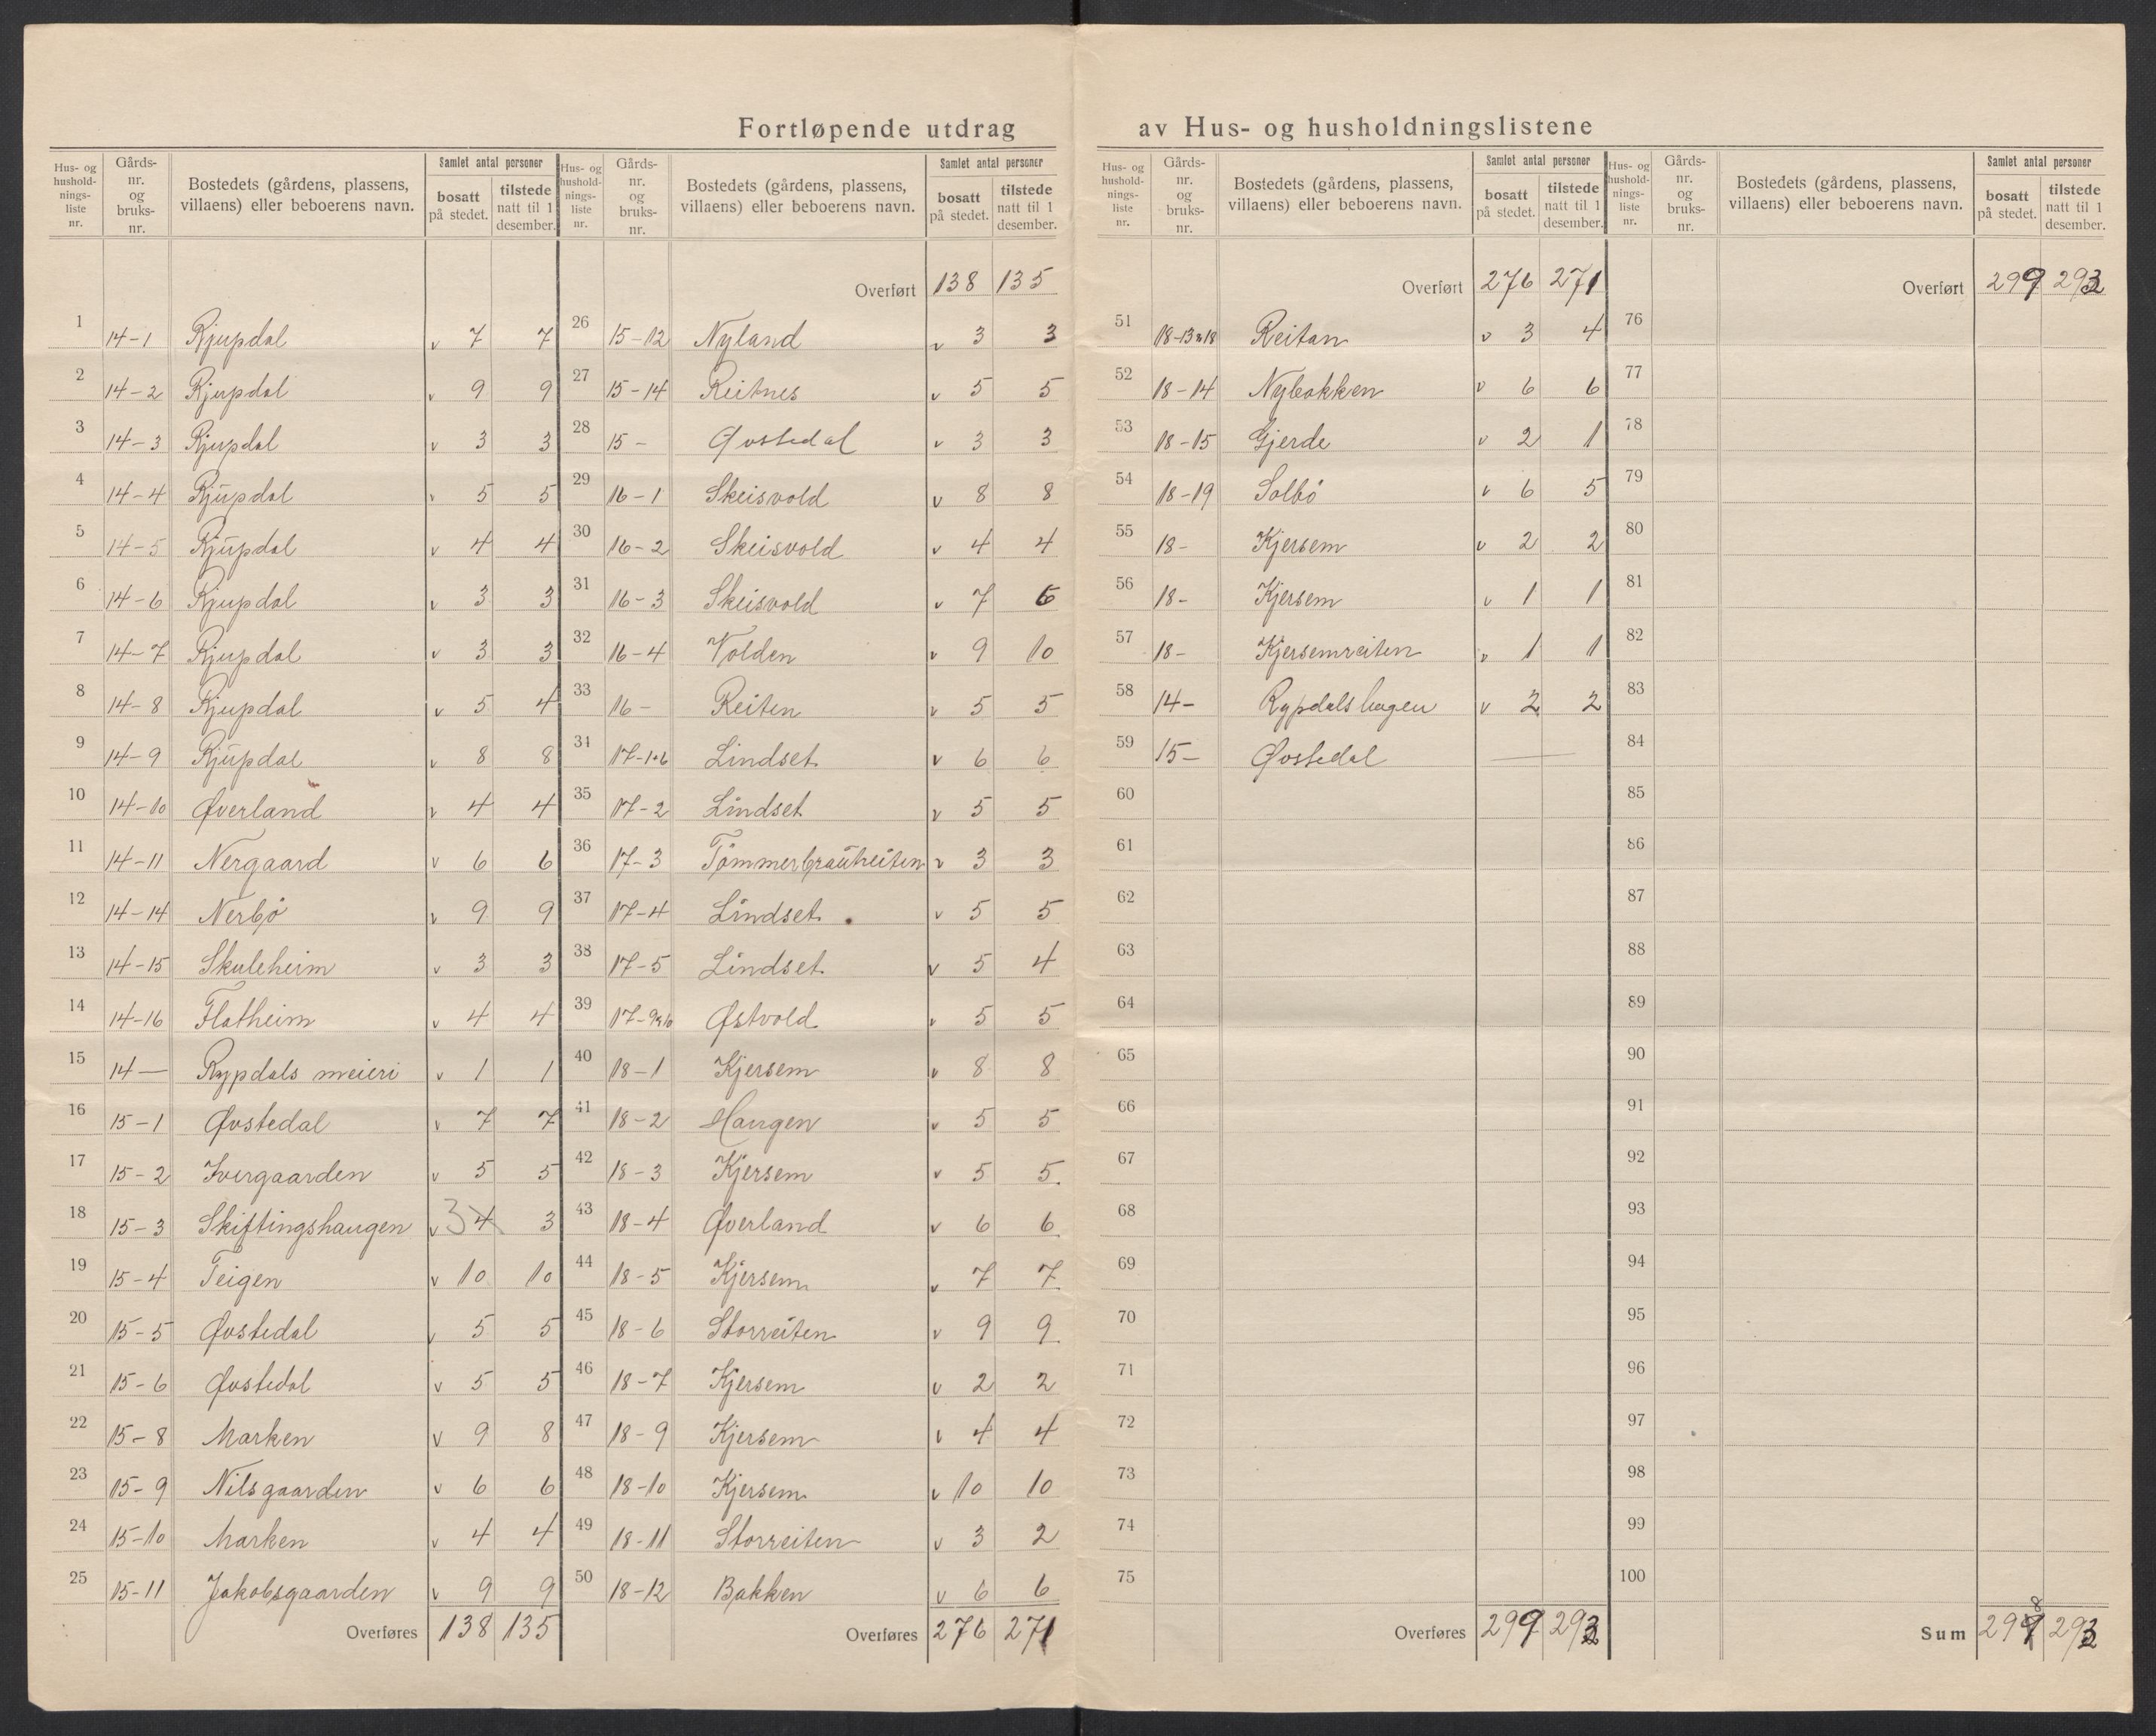 Fortløpende utdrag av Hus- og husholdningslistene
Hus- og hushold-nings-liste nr. | Gårds-nr. og bruks-nr. | Bostedets (gårdens, plassens, villaens) eller beboerens navn. | Samlet antal personer | bosatt på stedet. | tilstede natt til 1 desember.
1 14-1 Rjupdal v 7 7
2 14-2 Rjupdal v 9 9
3 14-3 Rjupdal v 3 3
4 14-4 Rjupdal v 5 5
5 14-5 Rjupdal v 4 4
6 14-6 Rjupdal v 3 3
7 14-7 Rjupdal v 3 3
8 14-8 Rjupdal v 5 4
9 14-9 Rjupdal v 8 8
10 14-10 Øverland v 4 4
11 14-11 Nergaard v 6 6
12 14-14 Nerbø v 9 9
13 14-15 Skuleheim v 3 3
14 14-16 Flatheim v 4 4
15 14— Rypdals meieri v 1 1
16 15-1 Øvstedal v 7 7
17 15-2 Ivergaarden v 5 5
18 15-3 Skiftingshaugen v 3 4 3
19 15-4 Teigen v 10 10
20 15-5 Øvstedal v 5 5
21 15-6 Øvstedal v 5 5
22 15-8 Marken v 9 8
23 15-9 Nilsgaarden v 6 6
24 15-10 Marken v 4 4
25 15-11 Jakobsgaarden v 9 9
Overføres 138 135
Hus- og hushold-nings-liste nr. | Gårds-nr. og bruks-nr. | Bostedets (gårdens, plassens, villaens) eller beboerens navn. | Samlet antal personer | bosatt på stedet. | tilstede natt til 1 desember.
Overført 138 135
26 15-12 Nyland v 3 3
27 15-14 Reitnes v 5 5
28 15- Øvstedal v 3 3
29 16-1 Skeisvold v 8 8
30 16-2 Skeisvold v 4 4
31 16-3 Skeisvold v 7 6
32 16-4 Volden v 9 10
33 16- Reiten v 5 5
34 17-1+6 Lindset v 6 6
35 17-2 Lindset v 5 5
36 17-3 v 3 3
37 17-4 Lindset v 5 5
38 17-5 Lindset v 5 4
39 17-9+10 Østvold v 5 5
40 18-1 Kjersem v 8 8
41 18-2 Haugen v 5 5
42 18-3 Kjersem v 5 5
43 18-4 Øverland v 6 6
44 18-5 Kjersem v 7 7
45 18-6 Storreiten v 9 9
46 18-7 Kjersem v 2 2
47 18-9 Kjersem v 4 4
48 18-10 Kjersem v 10 10
49 18-11 Storreiten v 3 2
50 18-12 Bakken v 6 6
Overføres 276 271
Hus- og hushold-nings-liste nr. | Gårds-nr. og bruks-nr. | Bostedets (gårdens, plassens, villaens) eller beboerens navn. | Samlet antal personer | bosatt på stedet. | tilstede natt til 1 desember.
Overført 276 271
51 18-13+18 Reitan v 3 4
52 18-14 Nybakken v 6 6
53 18-15 Gjerde v 2 1
54 18-19 Solbö v 6 5
55 18- Kjersem v 2 2
56 18- Kjersem v 1 1
57 18- Kjersemreiten v 1 1
58 14- Rypdalshagen v 2 2
59 15- Øvstedal —
60
61
62
63
64
65
66
67
68
69
70
71
72
73
74
75
Overføres 299 293
Hus- og hushold-nings-liste nr. | Gårds-nr. og bruks-nr. | Bostedets (gårdens, plassens, villaens) eller beboerens navn. | Samlet antal personer | bosatt på stedet. | tilstede natt til 1 desember.
Overført 299 293
76
77
78
79
80
81
82
83
84
85
86
87
88
89
90
91
92
93
94
95
96
97
98
99
100
8
Sum 299 293